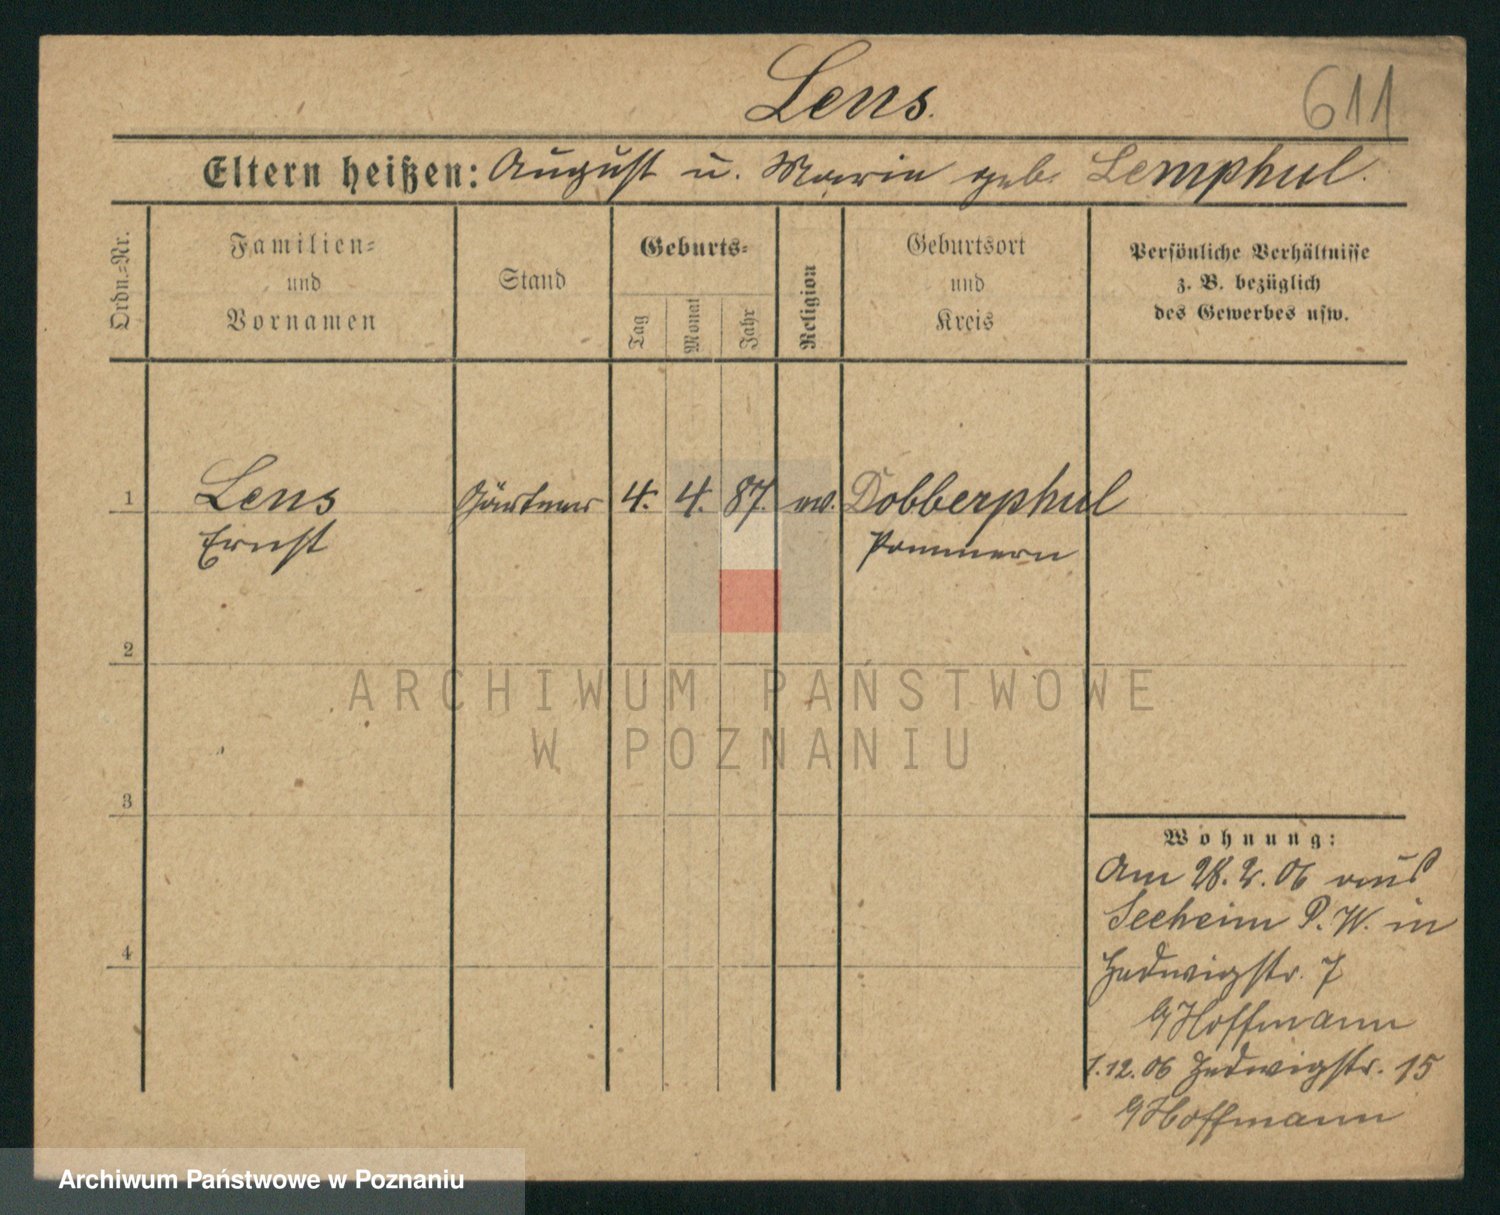 Lens.
611
Eltern heißen: August u. Marie geb. Lemphul.
Ordn.-Nr.
Familien-
und
Vornamen
Stand
Geburts-
Tag
Monat
Jahr
Religion
Geburtsort
und
Kreis
Persönliche Verhältnisse
z. B. bezüglich
des Gewerbes usw.
1
Lens
Ernst
Gärtner
4.
4.
87.
ev.
Dobberphul
Pommern
2
3
4
ARCHIWUM PAŃSTWOWE
W POZNANIU
Wohnung:
Am 28.2.06 aus
Seeheim P. W. in
Hedwigstr. 7
Hoffmann
1.12.06 Hedwigstr. 15
Hoffmann
Archiwum Państwowe w Poznaniu